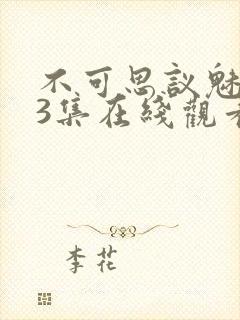 不可思議魅
3集在綫觀看
李花